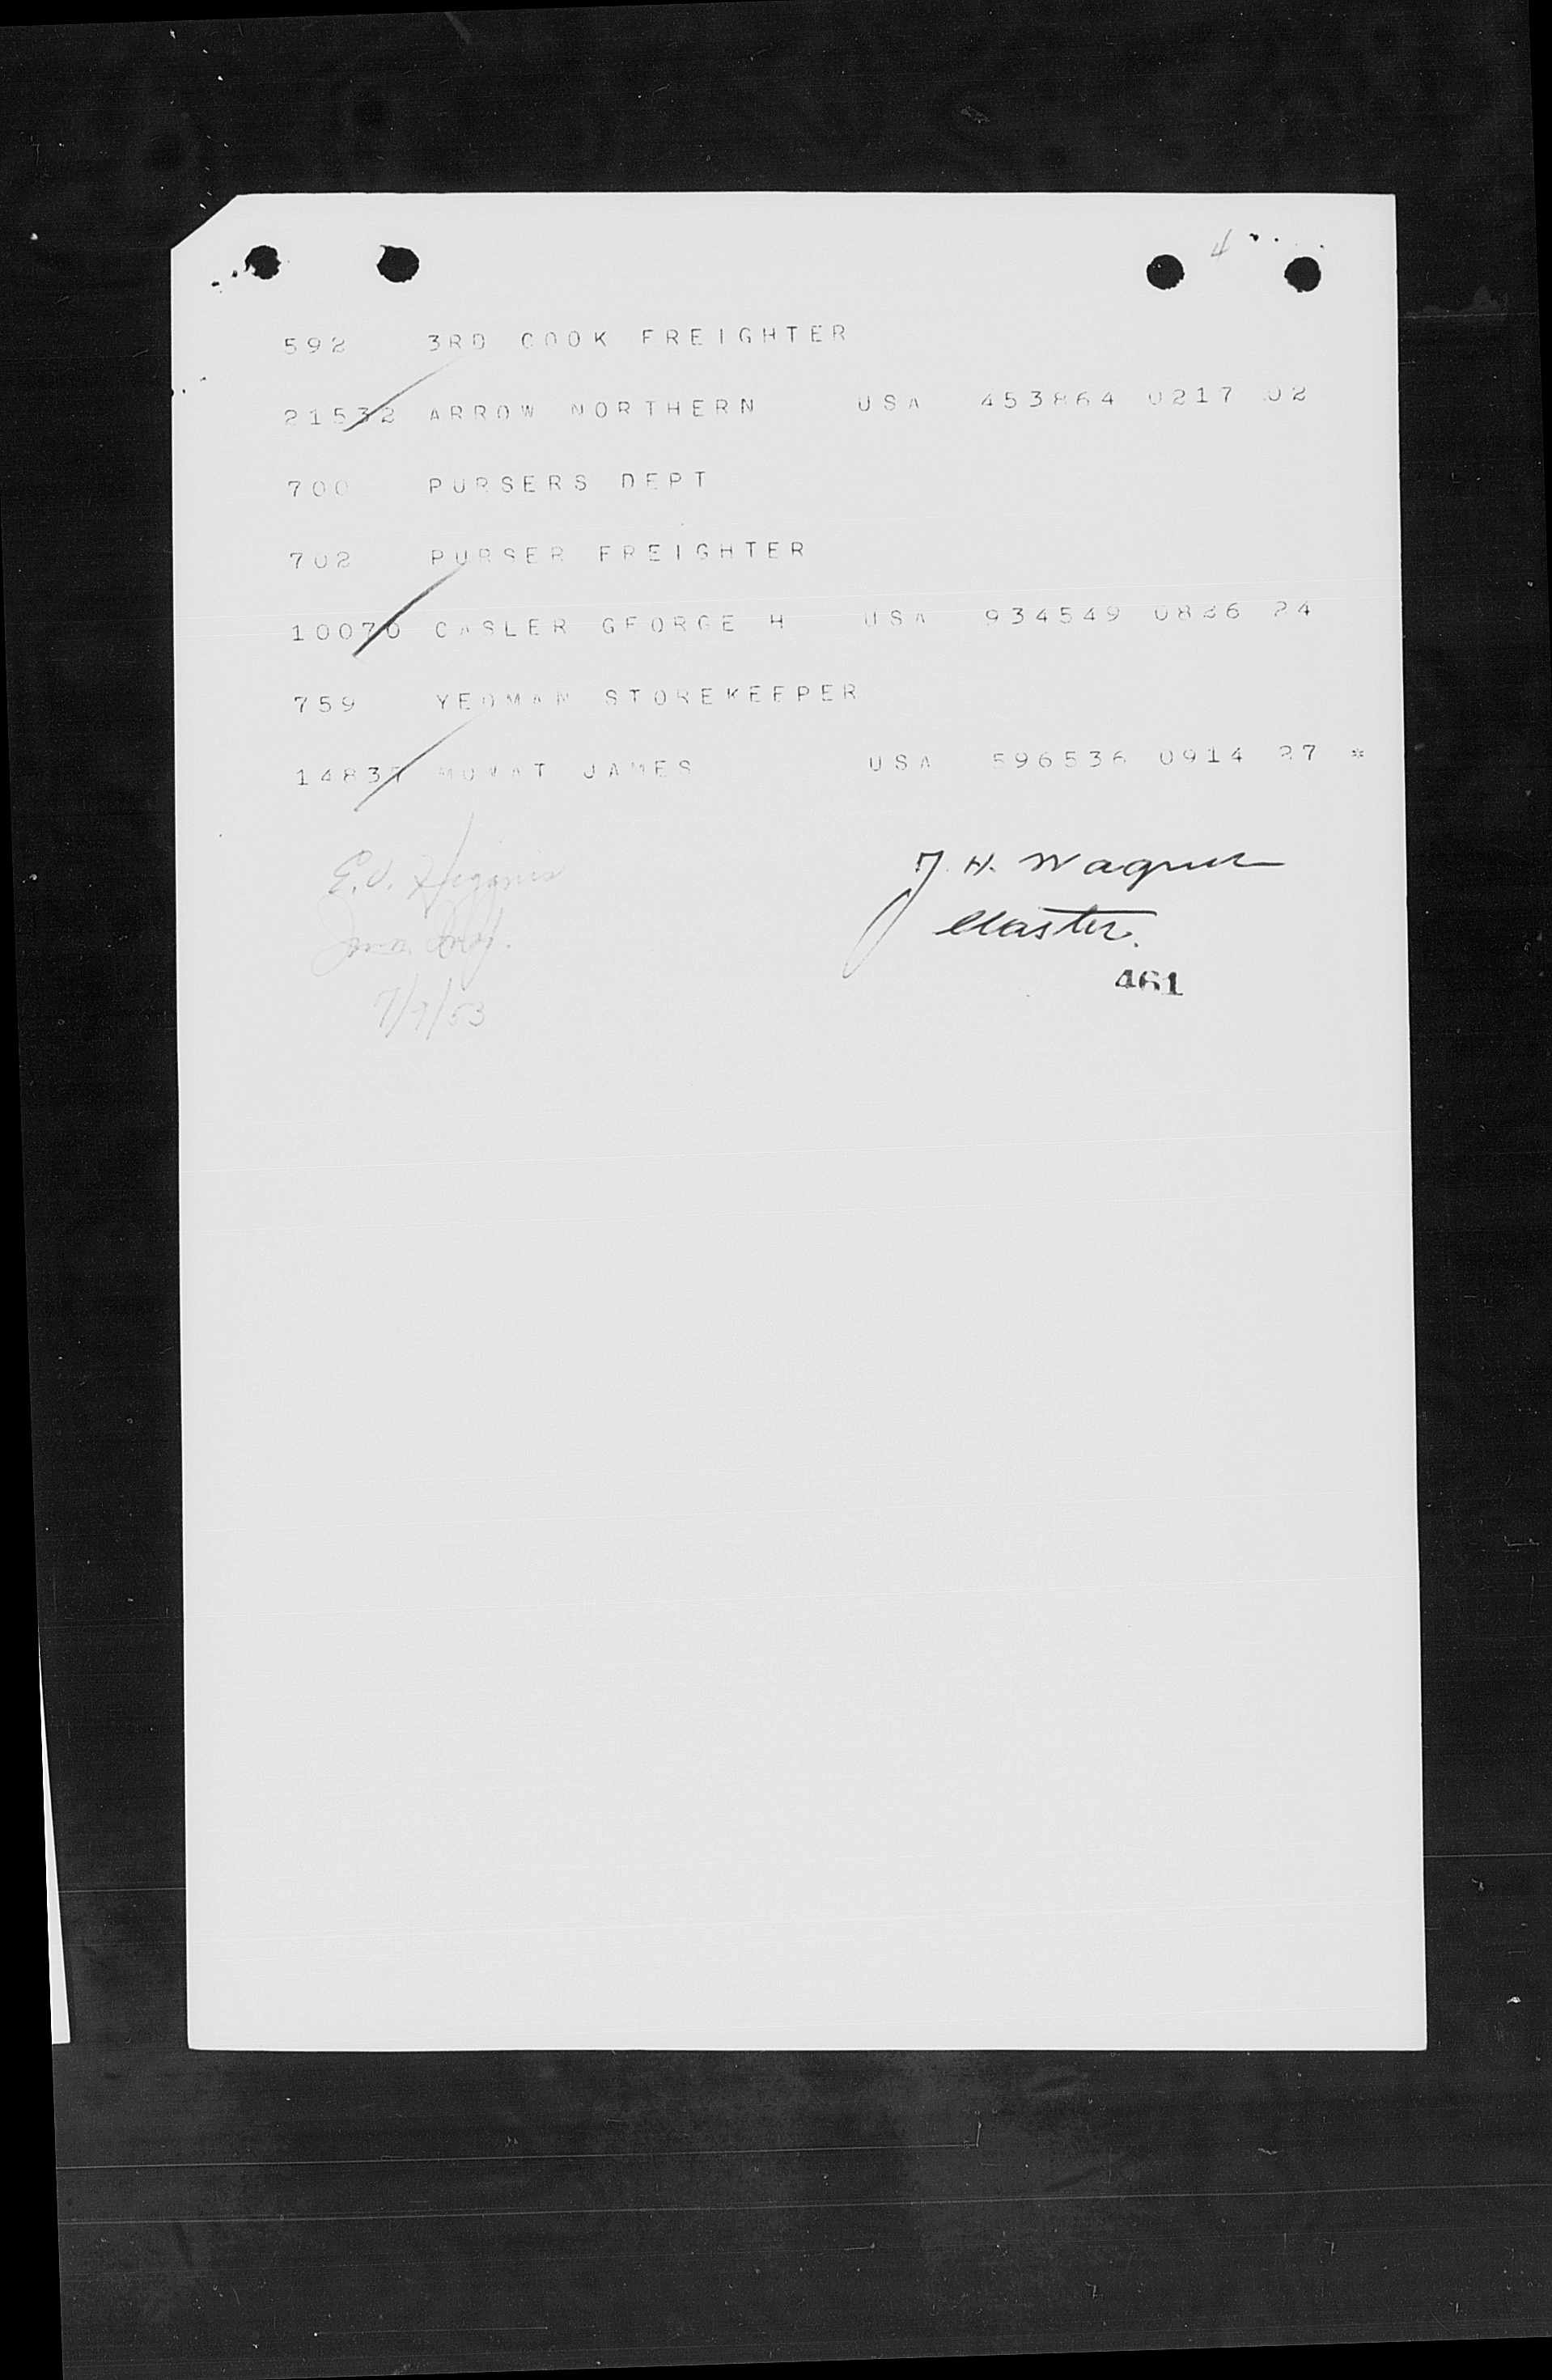 4
592 3RD COOK FREIGHTER
21532 ARROW NORTHERN USA 453864 0217 02
700 PURSERS DEPT
702 PURSER FREIGHTER
10070 CASLER GEORGE H USA 934549 0826 24
759 YEOMAN STOREKEEPER
14837 MOWAT JAMES USA 596536 0914 27 *
E.V. Higgins
J. H. Wagner
Master.
7/9/53
461